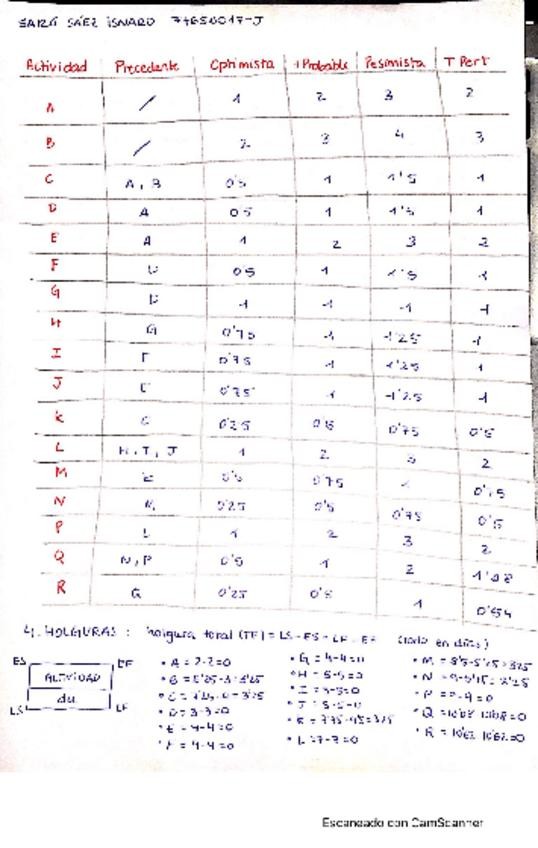 Actividad Precedente Optimista +Probable Pesimista T Pert
A / 1 2 3 2
B / 2 3 4 3
C A, B 0'5 1 1'5 1
D A 0'5 1 1'5 1
E A 1 2 3 2
F D 0'5 1 1'5 1
G D 1 1 1 1
H G 0'75 1 1'25 1
I F 0'75 1 1'25 1
J 0'75 1 1'25 1
K C 0'25 0'5 0'75 0'5
L H, I, J 1 2 3 2
M 0'5 0'75 1
N 0'25 0'5 0'75 0'5
P L 1 2 3 2
Q N, P 0'5 1 2 1'08
R Q 0'25 0'5 1 0'54
4. HOLGURAS: holgura total (TF) = LS-ES = LF-EF (todo en días)
ES EF
ACTIVIDAD
LS LF
• A = 2-2=0
• D = 3-3=0
• E = 4-4=0
• F = 4-4=0
• G = 4-4=0
• H = 5-5=0
• I = 5-5=0
• J = 5-5=0
• L = 7-7=0
• P = 9-9=0
• Q = 10'08-10'08=0
• R = 10'62-10'62=0
Escaneado con CamScanner